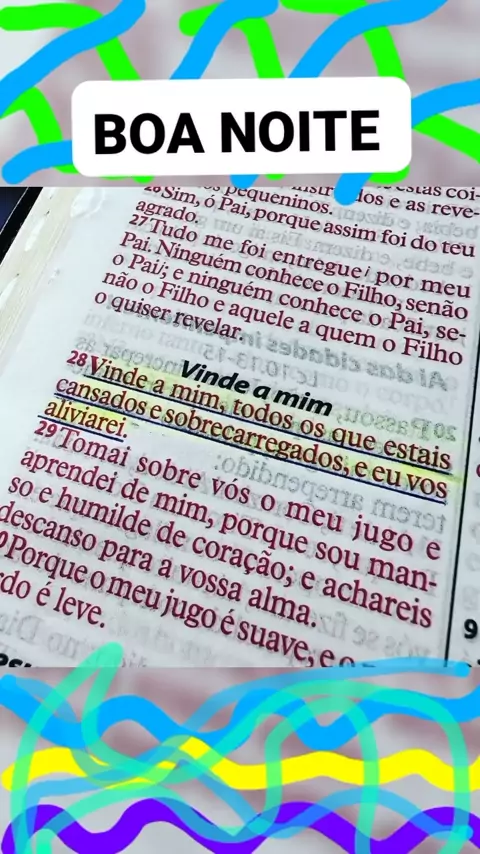 BOA NOITE
estas coi-
pequeninos.
e as reve-
26 Sim, ó Pai, porque assim foi do teu
agrado.
27 Tudo me foi entregue por meu
Pai. Ninguém conhece o Filho, senão
o Pai; e ninguém conhece o Pai, se-
não o Filho e aquele a quem o Filho
o quiser revelar.
Vinde a mim
28 Vinde a mim, todos os que estais
cansados e sobrecarregados, e eu vos
aliviarei.
29 Tomai sobre vós o meu jugo e
aprendei de mim, porque sou man-
so e humilde de coração; e achareis
descanso para a vossa alma.
Porque o meu jugo é suave, e o
rdo é leve.
9